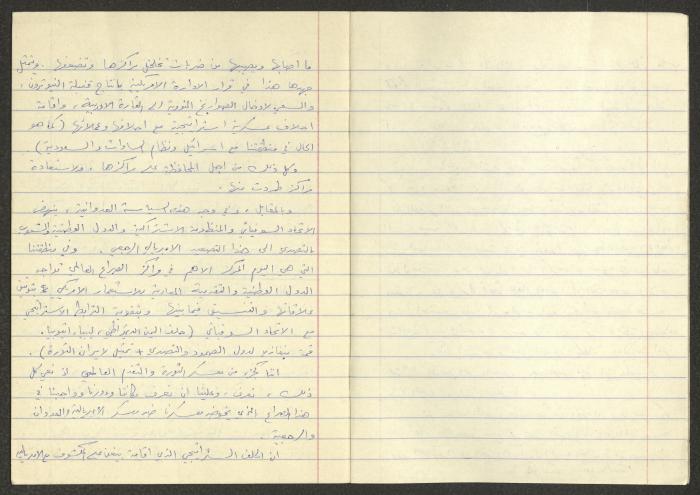 ما اصابها ويصيبها من ضربات تخلخل مراكزها وتضعفها. ويتمثل
جهدها هذا في قرار الادارة الامريكية بانتاج قنبلة النيوترون،
والسعي لادخال الصواريخ النووية الى القارة الاوربية، واقامة
احلاف عسكرية استراتيجية مع احلافها وعملائها (كما هو
الحال في منطقتنا مع اسرائيل ونظام السادات والسعودية)
وكل ذلك من اجل المحافظة على مراكزها، ولاستعادة
مراكز طردت منها.
وبالمقابل، وفي وجه هذه السياسة العدوانية، ينهض
الاتحاد السوفياتي والمنظومة الاشتراكية والدول الوطنية والشعوب
بالتصدي الى هذا التصعيد الامبريالي الرجعي. وفي منطقتنا
التي هي اليوم المركز الاهم في مراكز الصراع العالمي تواجه
الدول الوطنية والتقدمية المعادية للاستعمار الامريكي توثيق
علاقاتها والتنسيق فيما بينها وبتقوية الترابط الاستراتيجي
مع الاتحاد السوفياتي (حلف اليمن الديمقراطي، ليبيا، اثيوبيا.
قمة بنغازي لدول الصمود والتصدي + تمثيل لايران الثورة).
اننا كجزء من معسكر الثورة والتقدم العالمي، اذ نعي كل
ذلك، نعرف، وعلينا ان نعرف مكاننا ودورنا وواجبنا في
هذا الصراع الذي يخوضه معسكرنا ضد معسكر الامبريالية والعدوان
والرجعية.
ان الحلف الستراتيجي الذي اقامه بيغن على المكشوف مع الامبريالية